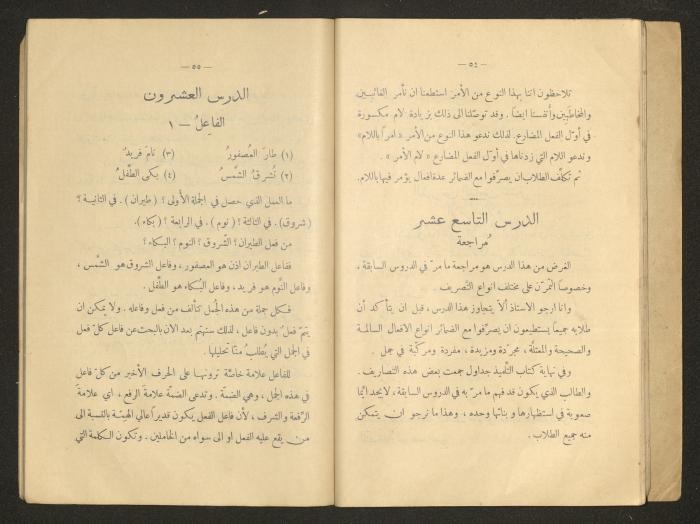 — ٥٤ —
تلاحظون اننا بهذا النوع من الأمر استطعنا ان نأمر الغائبين
والمخاطَبين وأنفسنا ايضاً. وقد توصّلنا الى ذلك بزيادة لام مكسورة
في أوّل الفعل المضارع. لذلك ندعو هذا النوع من الأمر «امراً باللام»
وندعو اللام التي زدناها في أوّل الفعل المضارع «لام الأمر».
ثم تكلّف الطلاب ان يصرّفوا مع الضمائر عدة افعال يؤمر فيها باللام.
الدرس التاسع عشر
مُراجعة
الغرض من هذا الدرس هو مراجعة ما مرّ في الدروس السابقة،
وخصوصاً التمرّن على مختلف انواع التّصريف.
وانا ارجو الاستاذ ألاّ يتجاوز هذا الدرس، قبل ان يتأكد أن
طلابه جميعاً يستطيعون ان يصرّفوا مع الضمائر انواع الافعال السالمة
والصحيحة والمعتلّة، مجرّدة ومزيدة، مفردة ومركّبة في جمل.
وفي نهاية كتاب التلميذ جداول جمعت بعض هذه التصاريف.
والطالب الذي يكون قد فهم ما مرّ به في الدروس السابقة، لا يجد ايّما
صعوبة في استظهارها وبنائها وحده، وهذا ما نرجو ان يتمكن
منه جميع الطلاب.
— ٥٥ —
الدرس العشرون
الفاعلُ – ١
(١) طارَ العُصفورُ (٣) نامَ فريدٌ
(٢) تُشرقُ الشّمسُ (٤) بكى الطّفلُ
ما العمل الذي حصل في الجملة الأولى؟ (طيران). في الثانية؟
(شروق). في الثالثة؟ (نوم). في الرابعة؟ (بكاء).
من فعل الطيران؟ الشّروق؟ النوم؟ البكاء؟
ففاعل الطيران اذن هو العصفور، وفاعل الشروق هو الشّمس،
وفاعل النّوم هو فريد، وفاعل البُكاء هو الطّفل.
فكل جملة من هذه الجُمل تتألف من فعل وفاعله. ولا يمكن ان
يتمّ فعلٌ بدون فاعل، لذلك سنهتم بعد الآن بالبحث عن فاعل كلّ فعل
في الجمل التي يُطلبُ منّا تحليلها.
للفاعل علامة خاصّة ترونها على الحرف الأخير من كلّ فاعل
في هذه الجمل، وهي الضمّة. وتدعى الضمّة علامة الرفع، اي علامة
الرّفعة والشرف، لأن فاعل الفعل يكون قديراً عالي الهيئة بالنسبة الى
من يقع عليه الفعل او الى سواه من الخاملين. وتكون الكلمة التي